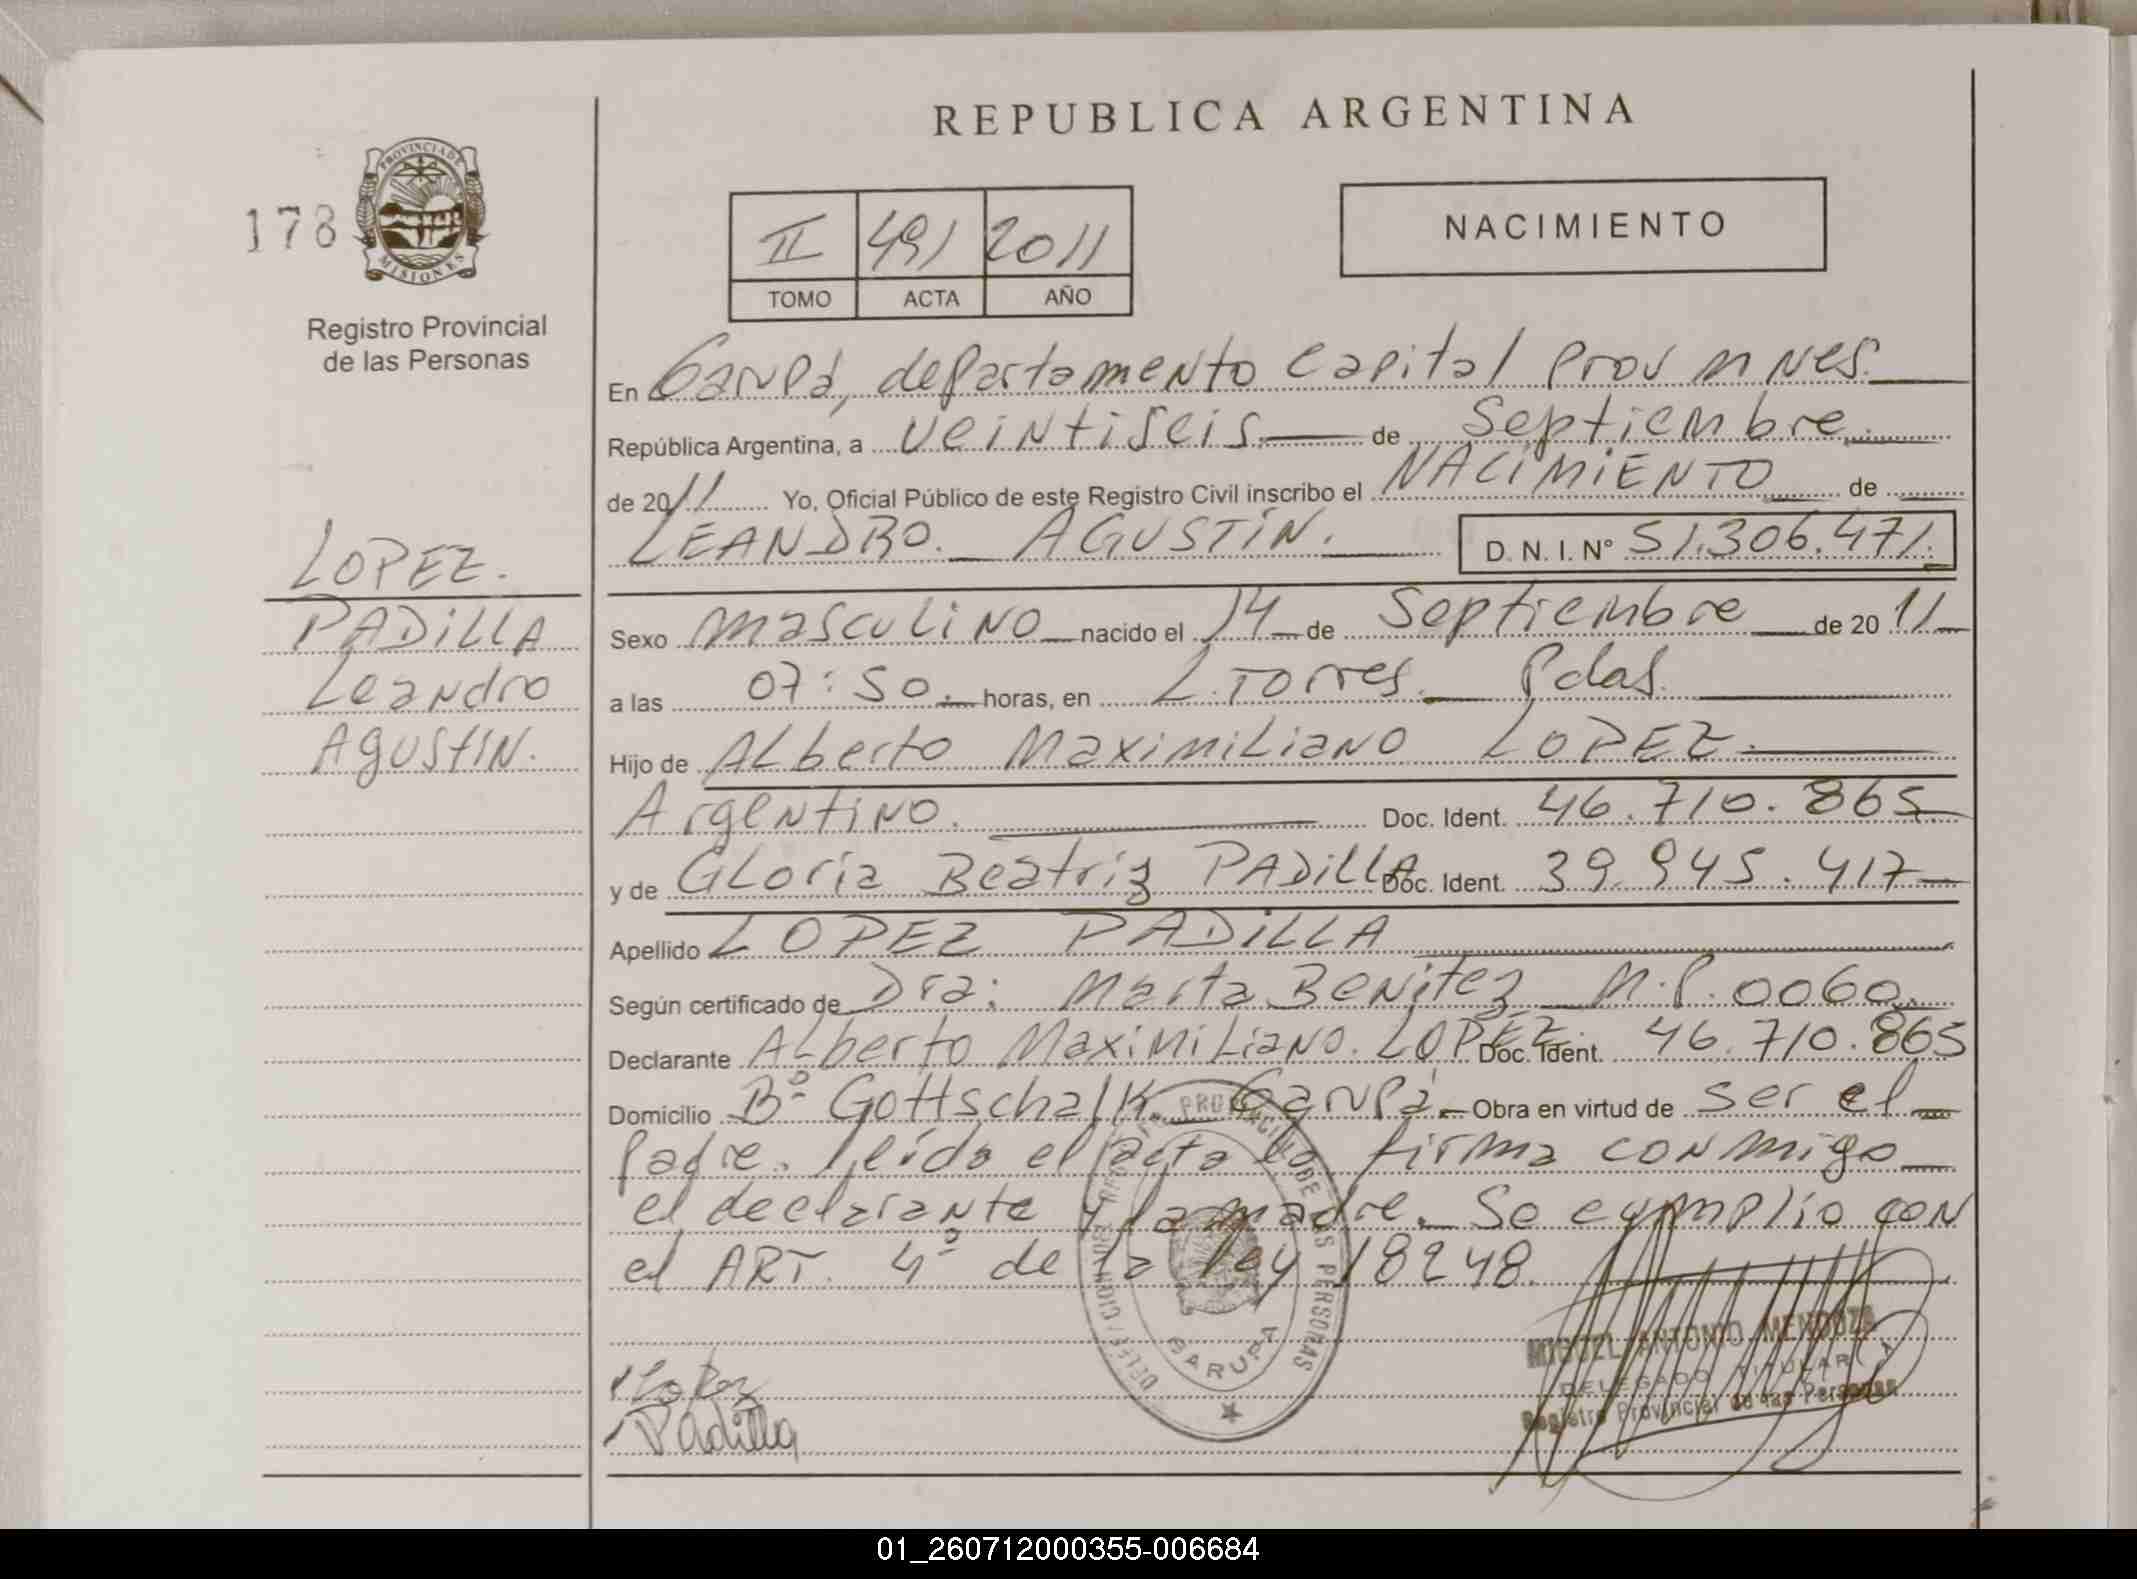 REPUBLICA ARGENTINA
178
PROVINCIA DE
MISIONES
Registro Provincial
de las Personas
II 491 2011
TOMO ACTA AÑO
NACIMIENTO
En Garupá, departamento Capital Prov Mnes.
República Argentina, a veintiseis de Septiembre
de 2011 Yo, Oficial Público de este Registro Civil inscribo el NACIMIENTO de
LEANDRO AGUSTIN. D. N. I. N° 51.306.471
LOPEZ.
PADILLA
Leandro
AGUSTIN.
Sexo masculino nacido el 14 de Septiembre de 2011
a las 07:50. horas, en L. Torres. Pdas.
Hijo de Alberto Maximiliano LOPEZ.
Argentino. Doc. Ident. 46.710.865
y de Gloria Beatriz PADILLA Doc. Ident. 39.945.417
Apellido LOPEZ PADILLA
Según certificado de Dra: Marta Benitez M.P. 0060.
Declarante Alberto Maximiliano. LOPEZ. Doc. Ident. 46.710.865
Domicilio B° Gottschalk. Garupá. Obra en virtud de ser el
Padre. leída el acta la firma conmigo
el declarante y la madre. Se cumplio con
el ART. 4° de la ley 18248.
DE LAS PERSONAS
GARUPA
Lopez
Padilla
MIGUEL ANTONIO MENDOZA
DELEGADO TITULAR
Registro Provincial de las Personas
01_260712000355-006684